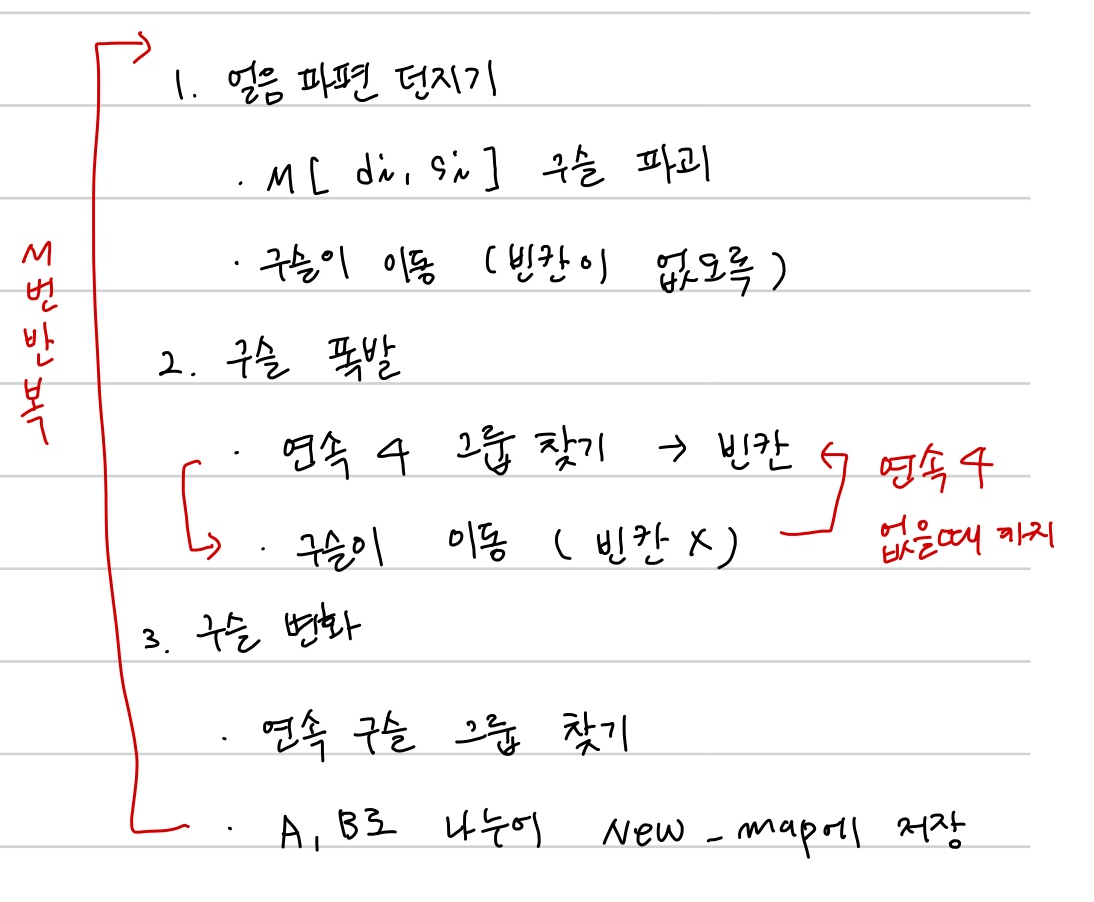 1. 얼음 파편 던지기
· M[ di, si ] 구슬 파괴
· 구슬이 이동 (빈칸이 없도록)
2. 구슬 폭발
· 연속 4 그룹 찾기 → 빈칸
· 구슬이 이동 ( 빈칸 X )
연속 4
없을때 까지
3. 구슬 변화
· 연속 구슬 그룹 찾기
· A, B로 나누어 New_map에 저장
M
번
반
복